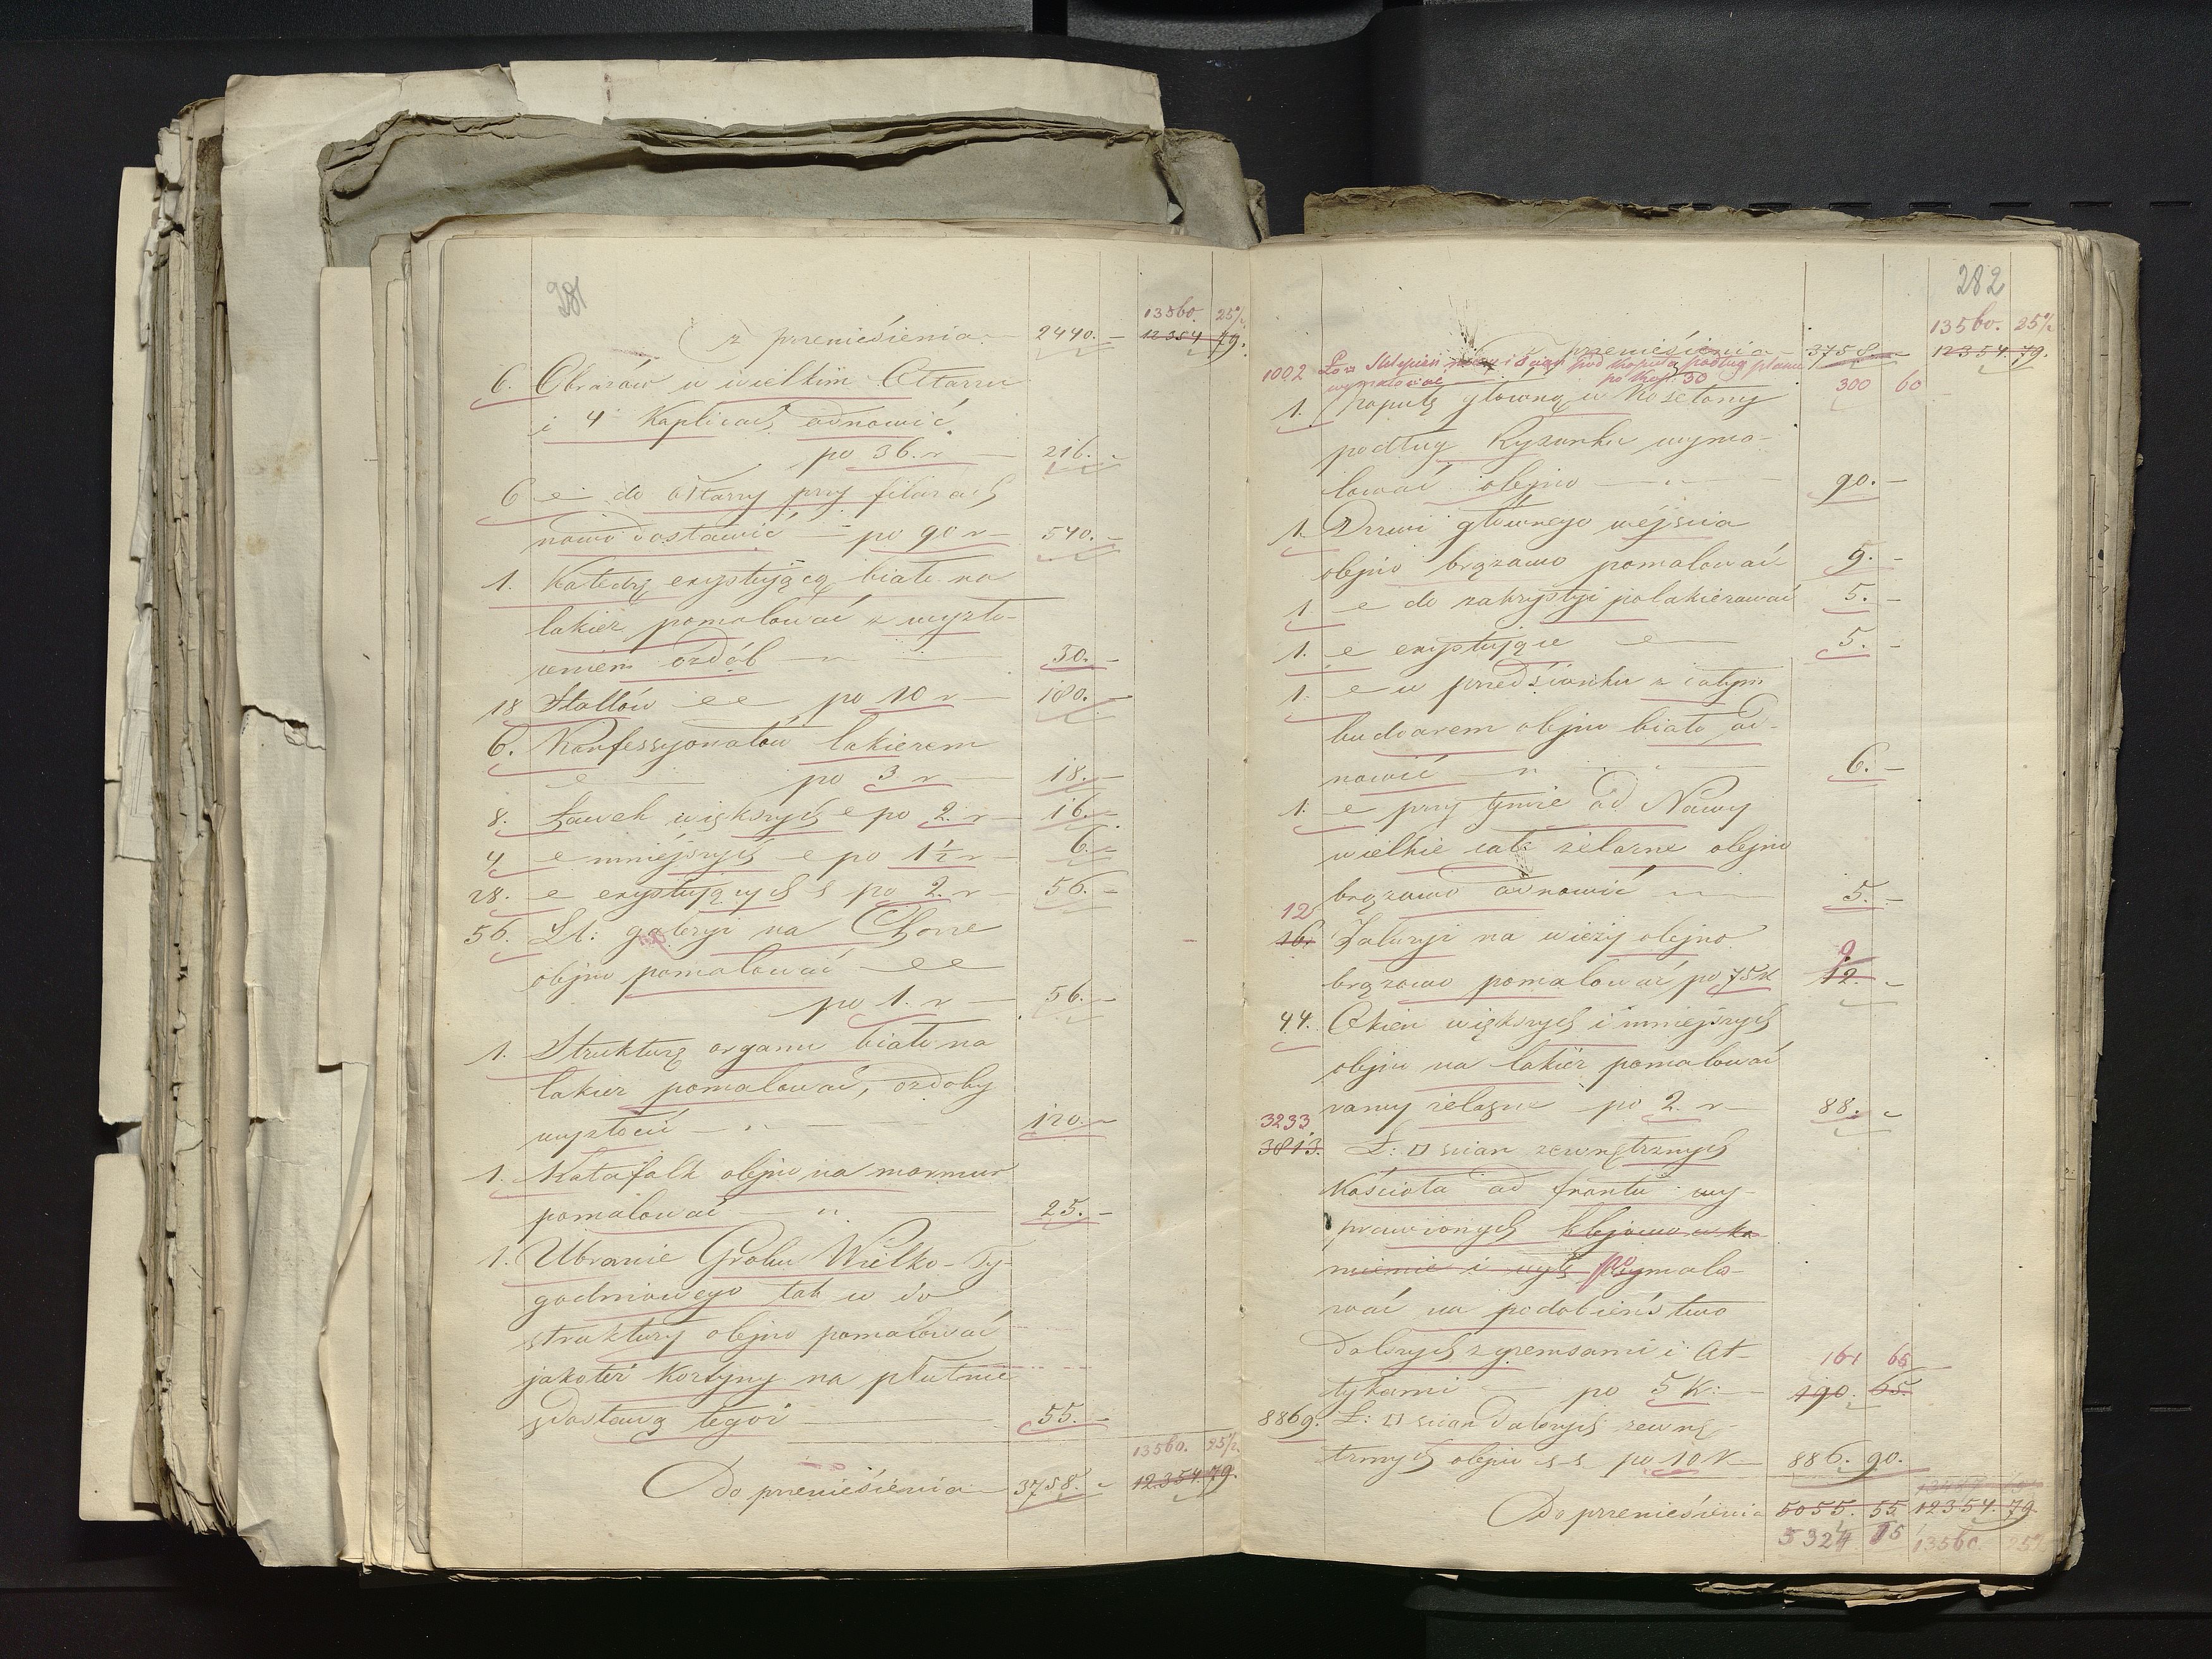 281
13560. 25½
z przeniesienia 2440. – 12354 79.
6. Obrazów w wielkim Ołtarzu
i 4 Kaplicach odnowić
po 36. r 216. –
6 e do ołtarzy przy filarach
nowo dostawić – po 90 r 540. –
1. Katedrę exystującą biało na
lakier pomalować z wyzło-
ceniem ozdób 30. –
18 Stallów e e po 10 r 180. –
6. Konfessyonałów lakierem
e po 3 r 18. –
8. Ławek większych e po 2. r 16. –
4 e mniejszych e po 1½ r 6. –
28. e exystujących e po 2. r 56. –
56. Ł: galeryi na Chorze
olejno pomalować e e
po 1. r 56. –
1. Strukturę organu biało na
lakier pomalować, ozdoby
wyzłocić 120. –
1. Katafalk olejno na marmur
pomalować 25. –
1. Ubranie Grobu Wielko-Ty-
godniowego tak w do
struktury olejno pomalować
jakoteż Kortyny na płutnie
z dostawą tegoż 55. –
13560. 25½
Do przeniesienia 3758. – 12354. 79.
282
13560. 25½
z przeniesienia 3758. – 12354. 79.
1002 Ło Sklepień i ścian pod kopułą podług planu
wymalować po kop. 30 300 60
1. Kopułę główną w Kosetony
podług Rysunku wyma-
lować olejno 90. –
1. Drzwi głównego wejścia
olejno brązowo pomalować 9. –
1. e do zakrystyi polakierować 5. –
1. e exystujące e 5. –
1. e w przedsionku z całym
olejno biało od-
nowić 6. –
1. e przy tymże od Nawy
wielkie całe żelazne olejno
brązowo odnowić 5. –
12
16. Żaluzyi na wieży olejno 9
brązowo pomalować po 75 k 12. –
44. Okien większych i mniejszych
olejno na lakier pomalować
ramy żelazne po 2. r 88. –
3233
3813. Ł: □ ścian zewnętrznych
Kościoła od frontu wy-
prawionych klejowo w ka
mienie i wymalo-
wać na podobieństwo
dalszych z gzemsami i At- 161 65
tykami po 5 K: 190. 65.
8869. Ł: □ ścian dalszych zewnę-
trznych olejno po 10 K 886. 90.
Do przeniesienia 5055. 55 12354. 79.
5324 15 13560. 25½